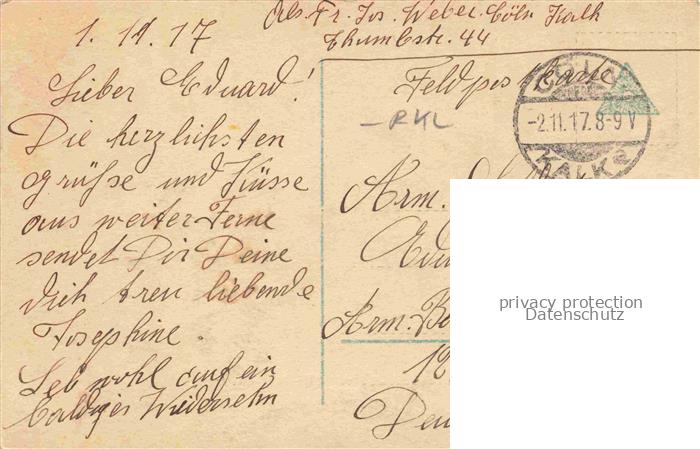 Abs. Fr. Jos. Weber. Cöln Kalk
Thumbstr. 44
1. 11. 17
Lieber Eduard!
Die herzlichsten
Grüße und Küsse
aus weiter Ferne
sendet Dir Deine
dich treu liebende
Josephine.
Leb wohl auf ein
baldiges Wiedersehn
Feldpost Karte
CÖLN
-2.11.17.8-9V
KALK 2
- RKL
Arm.
Edu
Arm. Be
12
Deu
privacy protection
Datenschutz